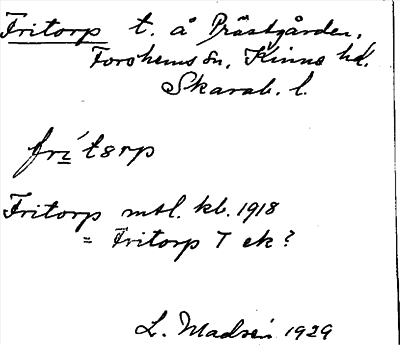 Fritorp t. å Prästgården,
Forshems sn, Kinne hd.
Skarab. l.
fri´tɵrp
Fritorp mtl. kb. 1918
= Fritorp T ek?
L. Madsén 1929